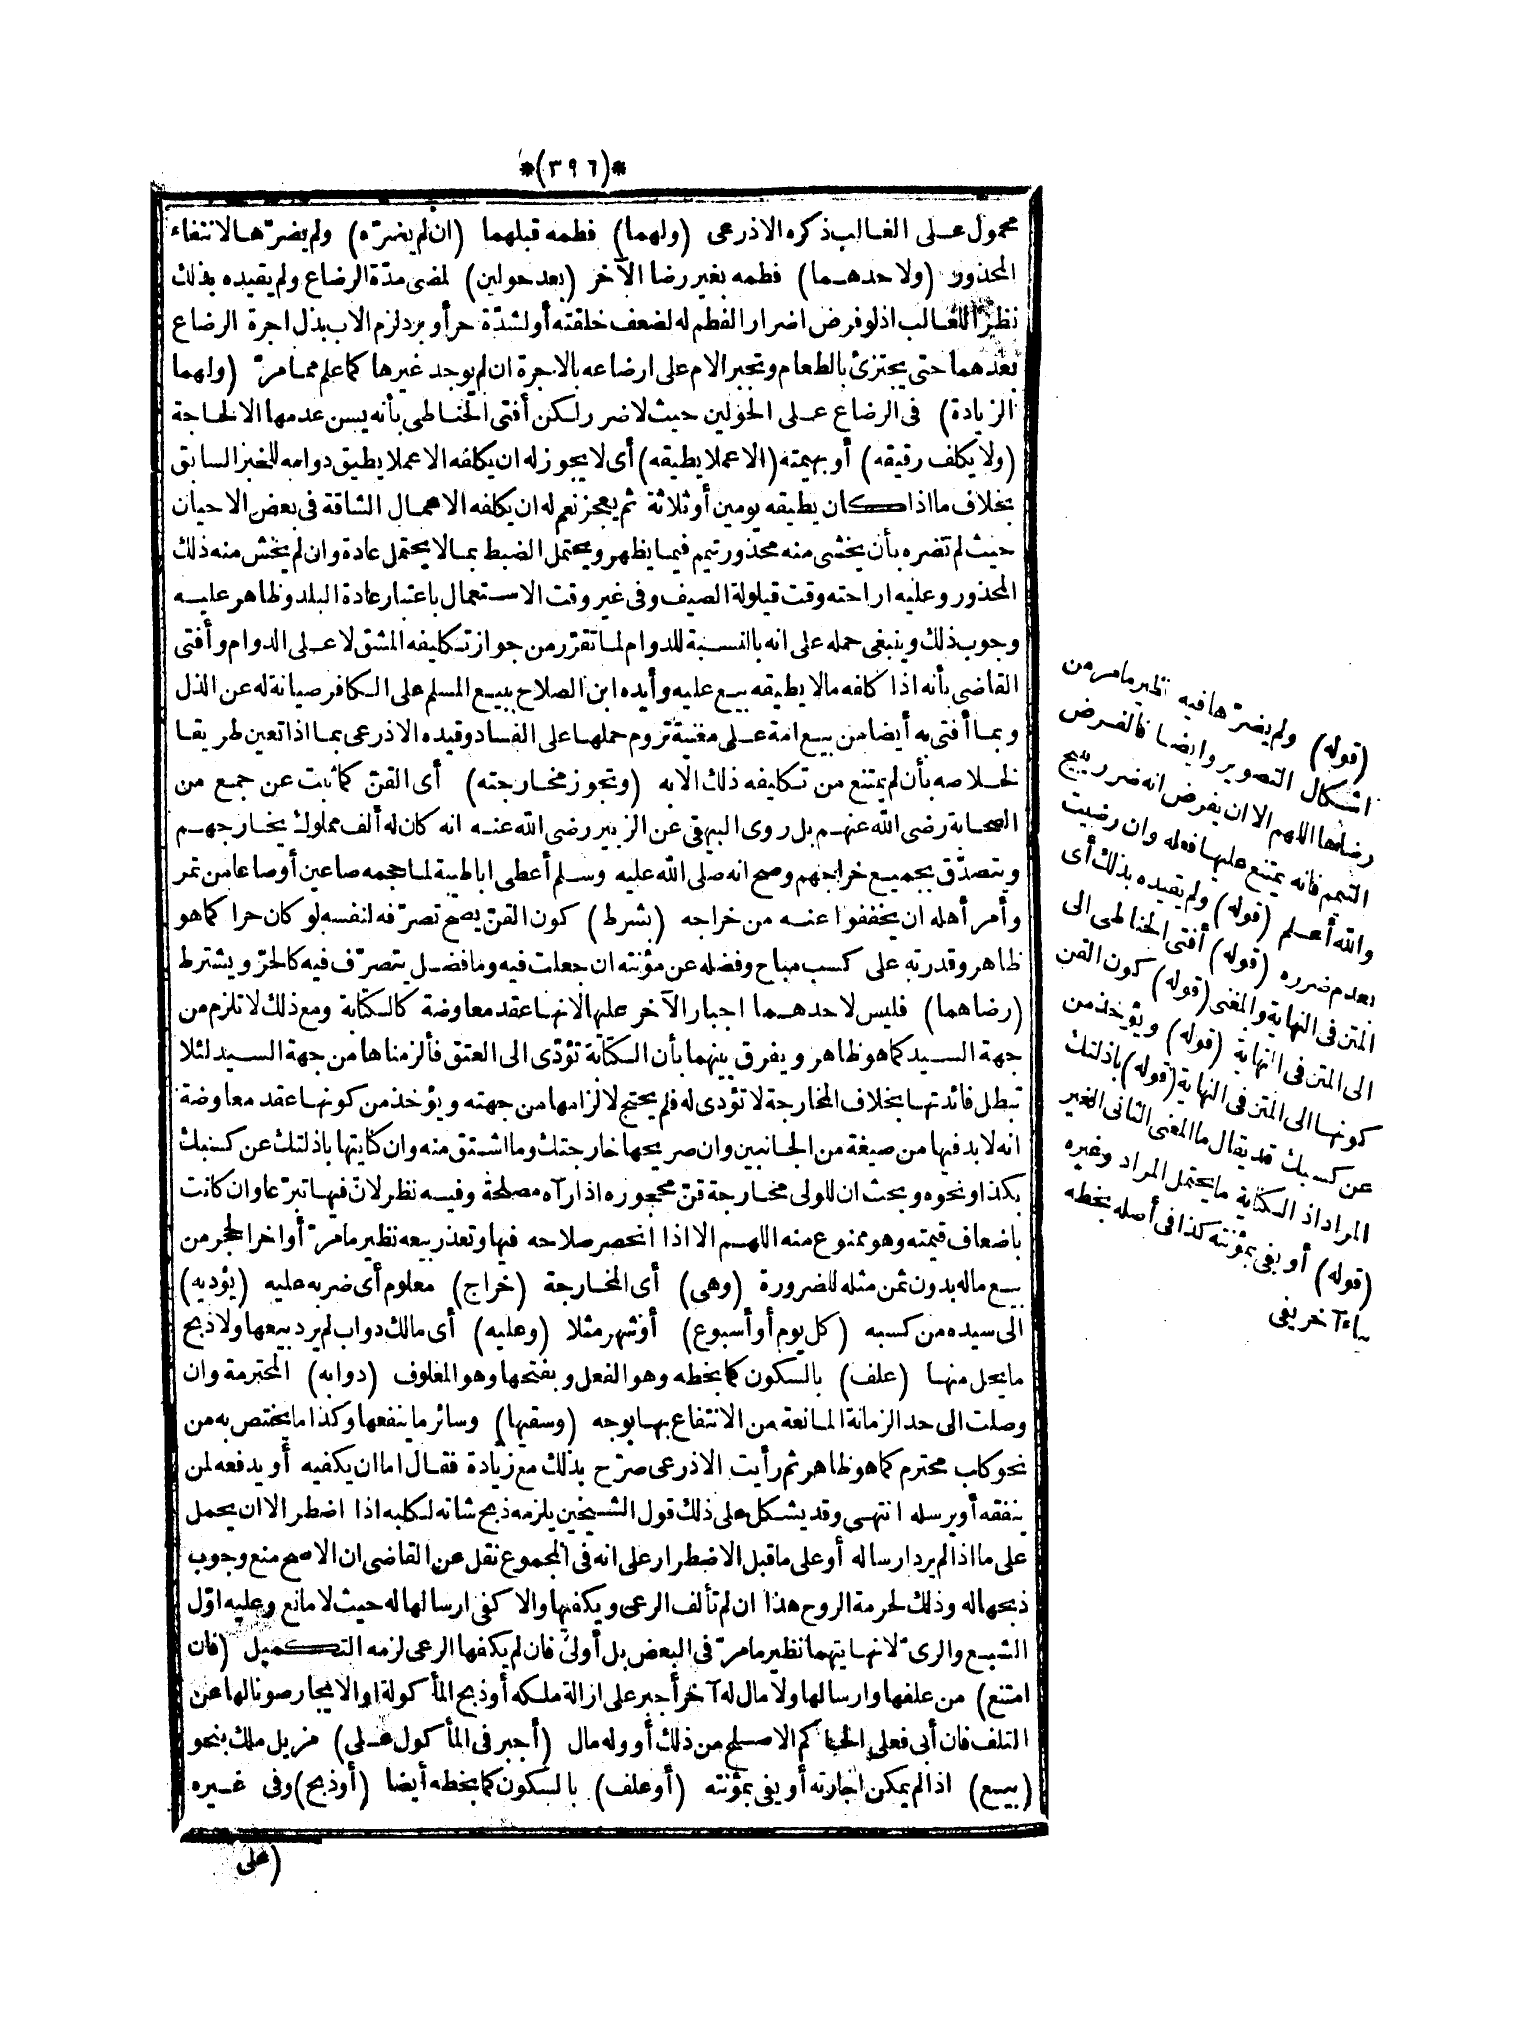 *(٣٩٦)*
محمول على الغالب ذكره الاذرعى (ولهما) فطمه قبلهما (ان لم يضرّه) ولم يضرّها لانتفاء
المحذور (ولاحدهما) فطمه بغير رضا الآخر (بعد حولين) لمضى مدّة الرضاع ولم يقيده بذلك
نظرا للغالب اذ لو فرض اضرار الفطم له لضعف خلقته أولشدّة حر أو برد لزم الاب بذل اجرة الرضاع
بعدهما حتى يجتزئ بالطعام وتجبر الام على ارضاعه بالاجرة ان لم يوجد غيرها كما علم ممامرّ (ولهما
الزيادة) فى الرضاع على الحولين حيث لاضر ر لكن أفتى الحناطى بأنه يسن عدمها الالحاجة
(ولا يكلف رقيقه) أو بهيمته (الاعملا يطيقه) أى لا يجوز له ان يكلفه الاعملا يطيق دوامه للخبر السابق
بخلاف مااذا كان يطيقه يومين أوثلاثة ثم يعجز نعم له ان يكلفه الاعمال الشاقة فى بعض الاحيان
حيث لم تضره بأن يخشى منه محذور تيمم فيما يظهر ويحتمل الضبط بمالا يحتمل عادة وان لم يخش منه ذلك
المحذور وعليه اراحته وقت قيلولة الصيف وفى غير وقت الاستعمال باعتبار عادة البلد وظاهر عليه
وجوب ذلك وينبغى حمله على انه بالنسبة للدوام لما تقرّر من جواز تكليفه المشق لا على الدوام وأفتى
القاضى بأنه اذا كلفه مالا يطيقه بيع عليه وأيده ابن الصلاح ببيع المسلم على الكافر صيانة له عن الذل
وبما أفتى به أيضا من بيع امة على مغنية تروم حملها على الفساد وقيده الاذرعى بما اذا تعين طريقا
لخلاصه بأن لم يمتنع من تكليفه ذلك الا به (وتجوز مخارجته) أى القنّ كما ثبت عن جمع من
الصحابة رضى الله عنهم بل روى البيهقى عن الزبير رضى الله عنه انه كان له ألف مملوك يخارجهم
ويتصدّق بجميع خراجهم وصح انه صلى الله عليه وسلم أعطى اباطيبة لما حجمه صاعين أوصاعا من تمر
وأمر أهله ان يخففوا عنه من خراجه (بشرط) كون القنّ يصح تصرّفه لنفسه لو كان حرا كما هو
ظاهر وقدرته على كسب مباح وفضله عن مؤنته ان جعلت فيه ومافضل يتصرّف فيه كالحرّ ويشترط
(رضاهما) فليس لاحدهما اجبار الآخر عليها لانها عقد معاوضة كالكتابة ومع ذلك لا تلزم من
جهة السيد كما هو ظاهر ويفرق بينهما بأن الكتابة تؤدّى الى العتق فألزمناها من جهة السيد لئلا
تبطل فائدتها بخلاف المخارجة لا تؤدى له فلم يحتج لالزامها من جهته ويؤخذ من كونها عقد معاوضة
انه لابد فيها من صيغة من الجانبين وان صريحها خارجتك وما اشتق منه وان كنايتها باذلتك عن كسبك
بكذا ونحوه وبحث ان للولى مخارجة قنّ محجوره اذا رآه مصلحة وفيه نظر لانّ فيها تبرّعا وان كانت
باضعاف قيمته وهو ممنوع منه اللهم الا اذا انحصر صلاحه فيها وتعذر بيعه نظير مامرّ أواخر الحجر من
بيع ماله بدون ثمن مثله للضرورة (وهى) أى المخارجة (خراج) معلوم أى ضربه عليه (يؤديه)
الى سيده من كسبه (كل يوم أو أسبوع) أو شهر مثلا (وعليه) أى مالك دواب لم يرد بيعها ولا ذبح
مايحل منها (علف) بالسكون كما بخطه وهو الفعل وبفتحها وهو المعلوف (دوابه) المحترمة وان
وصلت الى حد الزمانة المانعة من الانتفاع بها بوجه (وسقيها) وسائر ما ينفعها وكذا ما يختص به من
نحو كلب محترم كما هو ظاهر ثم رأيت الاذرعى صرّح بذلك مع زيادة فقال اما ان يكفيه أو يدفعه لمن
ينفقه أو يرسله انتهى وقد يشكل على ذلك قول الشيخين يلزمه ذبح شاته لكلبه اذا اضطر الا ان يحمل
على ما اذا لم يرد ارساله أو على ما قبل الاضطرار على انه فى المجموع نقل عن القاضى ان الاصح منع وجوب
ذبحها له وذلك لحرمة الروح هذا ان لم تألف الرعى ويكفيها والا كفى ارسالها له حيث لامانع وعليه اوّل
الشبع والرىّ لانهايتهما نظير مامرّ فى البعض بل أولى فان لم يكفها الرعى لزمه التكميل (فان
امتنع) من علفها وارسالها ولا مال له آخر أجبر على ازالة ملكه أو ذبح المأكولة او الايجار صونا لها عن
التلف فان أبى فعل الحاكم الاصلح من ذلك أو وله مال (أجبر فى المأكول على) مزيل ملك بنحو
(بيع) اذا لم يمكن اجارته أو يفى بمؤنته (أو علف) بالسكون كما بخطه أيضا (أو ذبح) وفى غيره
(على
(قوله) ولم يضرّها فيه نظير مامر من
اشكال التصوير وايضا فالفرض
رضاها اللهم الا ان يفرض انه ضرر يبيح
التيمم فانه يمتنع عليها فعله وان رضيت
والله أعلم (قوله) ولم يقيده بذلك أى
بعدم ضرره (قوله) أفتى الحناطى الى
المتن فى النهاية والمغنى (قوله) كون القن
الى المتن فى النهاية (قوله) ويؤخذ من
كونها الى المتن فى النهاية (قوله) باذلتك
عن كسبك قد يقال ما المغنى الثانى الغير
المراد اذ الكتاية ما يحتمل المراد وغيره
(قوله) أو يفى بمؤنته كذا فى أصله بخطه
بياء آخر يفى